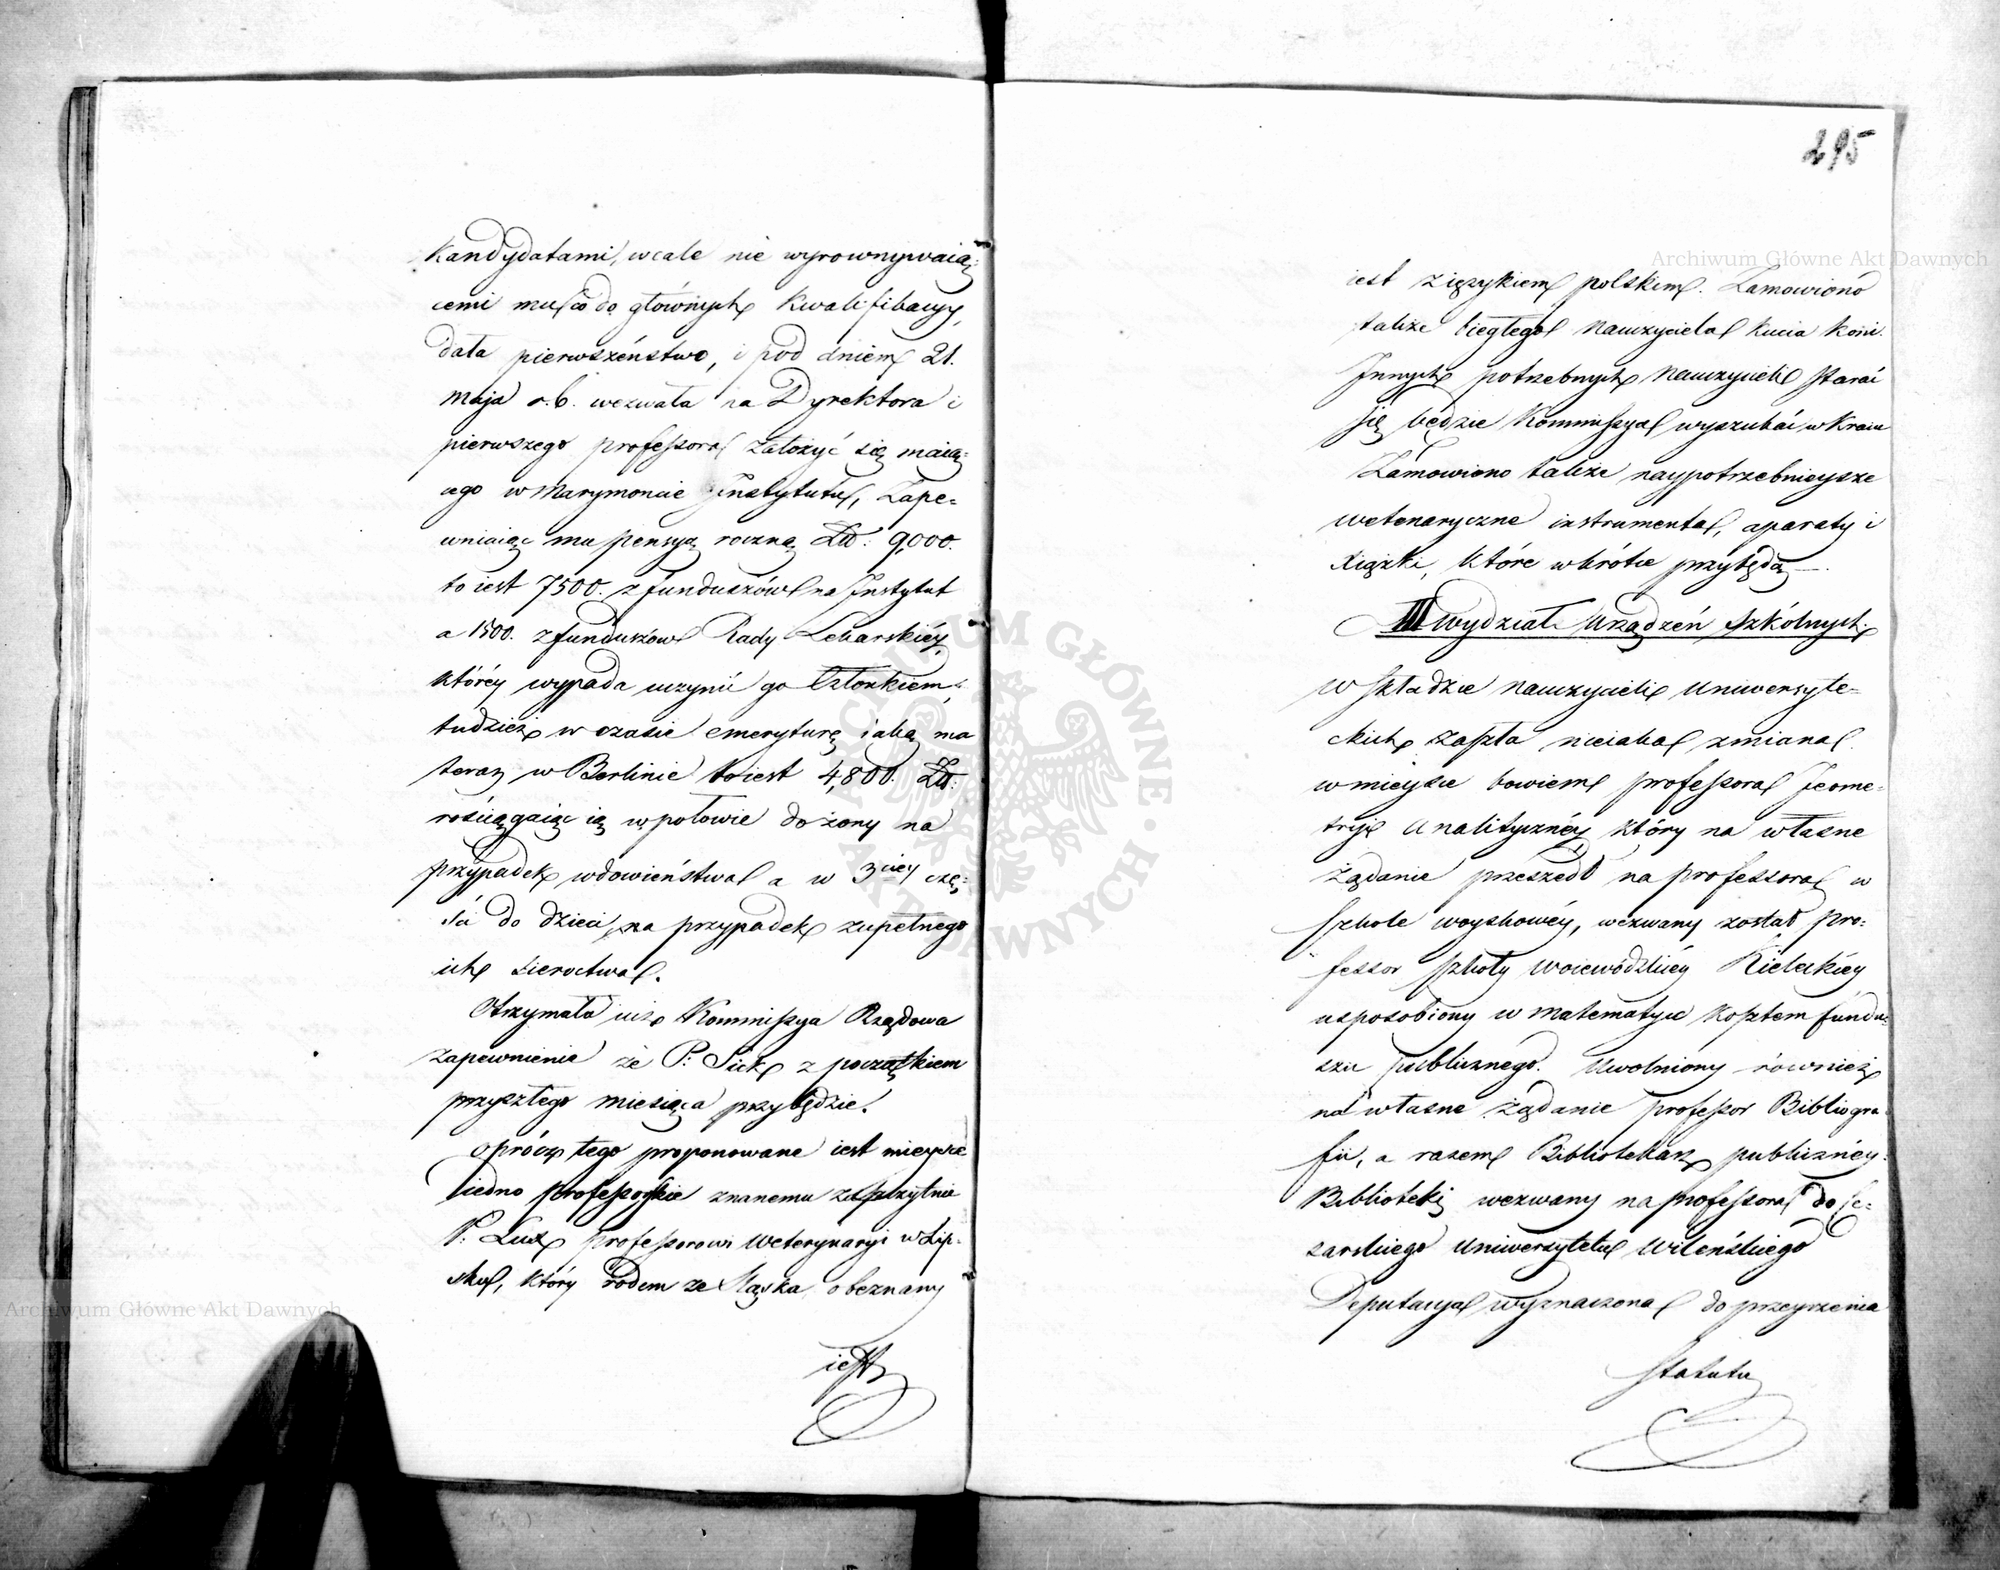 kandydatami, wcale nie wyrownywaią=
cemi mu co do głównych kwalifikacyy,
dała pierwszeństwo, i pod dniem 21.
maja r. b. wezwała na Dyrektora i
pierwszego professora założyć się maią=
cego w Marymoncie Instytutu, zape=
wniaiąc mu pensyą roczną Zł: 9,000.
to iest 7500. z funduszów na Instytut
a 1500. z funduszów Rady Lekarskiéy,
któréy wypada uczynić go Członkiem,
tudzież w czasie emeryturę iaką ma
teraz w Berlinie to iest 4,800. Zł:
rościągaiąc ią w połowie do żony na
przypadek wdowieństwa a w 3ciey czę=
ści do dzieci, na przypadek zupełnego
ich sieroctwa.
Otrzymała iuż Kommissya Rządowa
zapewnienie że P: Sick z początkiem
przyszłego miesiąca przybędzie.
oprócz tego proponowane iest mieysce
iedno professorskie znanemu zaszczytnie
P: Lux professorowi weterynaryi w Lip=
sku, który rodem ze Śląska, obeznany
iest
295
iest z ięzykiem polskim. Zamowiono
także biegłego nauczyciela kucia koni.
Innych potrzebnych nauczycieli starać
się będzie Kommissya wyszukać w kraiu
Zamowiono także naypotrzebnieysze
weterynaryczne instrumenta, aparaty i
xiążki, które wkrótce przybędą —.
III Wydział Urządzeń Szkólnych.
W składzie nauczycieli Uniwersyte=
ckich zaszła nieiaka zmiana
w mieysce bowiem professora Jeome=
tryi analitycznéy który na własne
żądanie przeszedł na professora w
szkole woyskowéy, wezwany został pro=
fessor szkoły Woiewódzkiéy Kieleckiéy
usposobiony w matematyce kosztem fundu=
szu publicznego. Uwolniony również
na własne żądanie professor Bibliogra=
fii, a razem Bibliotekarz publicznéy
Biblioteki wezwany na professora do Ce=
sarskiego Uniwersytetu Wileńskiego
Deputacya wyznaczona do przeyrzenia
Statutu
Archiwum Główne Akt Dawnych
Archiwum Główne Akt Dawnych
ARCHIWUM GŁÓWNE AKT DAWNYCH